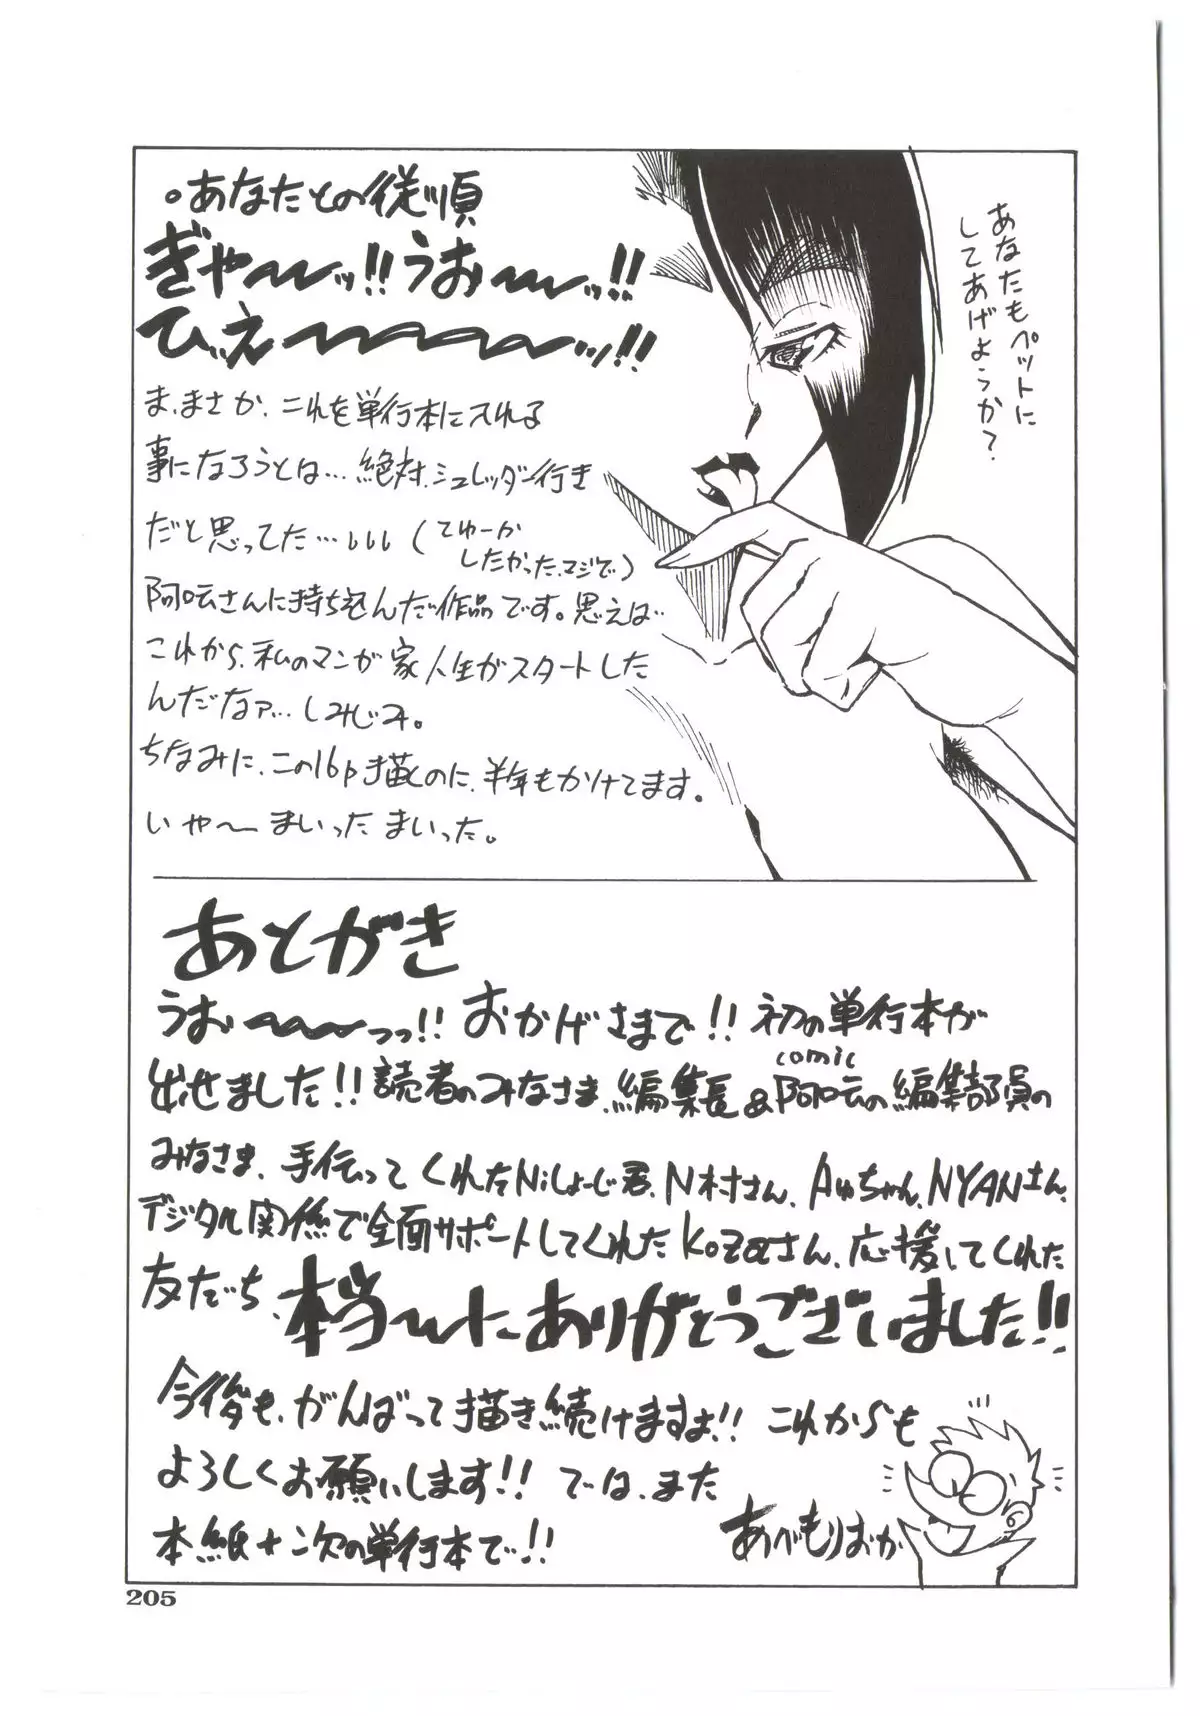 。あなたとの従順
ぎゃ〜〜ッ!!うお〜〜ッ!!
ひえ〜〜〜〜ッ!!
ま、まさか、これを単行本に入れる
事になろうとは…絶対、シュレッダー行き
だと思ってた…
(てゆーか
したかった、マジで)
阿吽さんに持ち込んだ作品です。思えば
これから、私のマンガ家人生がスタートした
んだなァ…しみじみ。
ちなみに、この16p描くのに、半年もかけてます。
いや〜まいったまいった。
あなたもペットに
してあげようか?
あとがき
うお〜〜〜っっ!!おかげさまで!!初の単行本が
comic
出せました!!読者のみなさま、編集長&阿吽の編集部員の
みなさま、手伝ってくれたNiしょーじ君、N村さん、Aゅちゃん、NYANさん、
デジタル関係で全面サポートしてくれたKozaさん、応援してくれた
友だち、本当〜にありがとうございました!!
今後も、がんばって描き続けますよ!!これからも
よろしくお願いします!!では、また
本紙+次の単行本で!!
あべもりおか
205